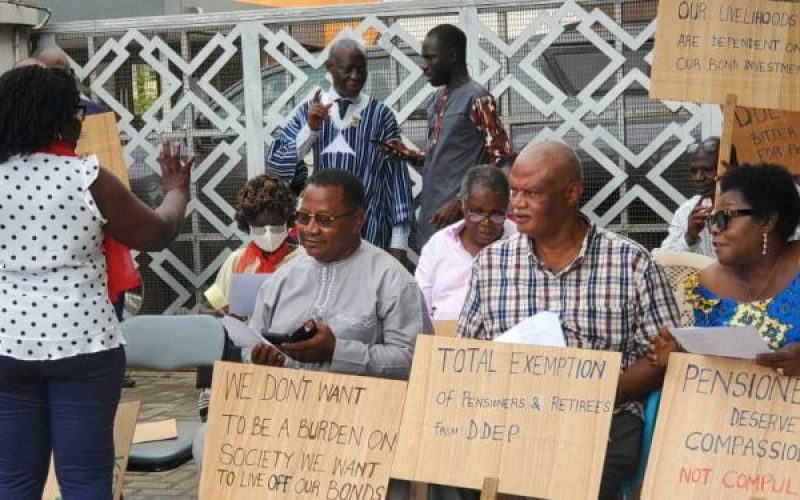 OUR LIVELIHOODS
ARE DEPENDENT ON
OUR BOND INVESTME
DDE
BITTER
FOR
WE DON'T WANT
TO BE A BURDEN ON
SOCIETY. WE WANT
TO LIVE OFF OUR BONDS
TOTAL EXEMPTION
OF PENSIONERS & RETIREES
FROM DDEP
PENSIONE
DESERVE
COMPASSION
NOT COMPUL